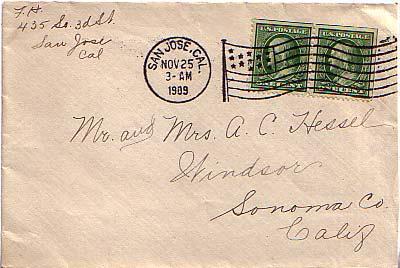 F. H.
435 So. 3d St.
San Jose
Cal
SAN JOSE, CAL.
NOV 25
3-AM
1909
U.S. POSTAGE
U.S. POSTAGE
Mr. and Mrs. A. C. Hessel
Windsor
Sonoma Co.
Calif